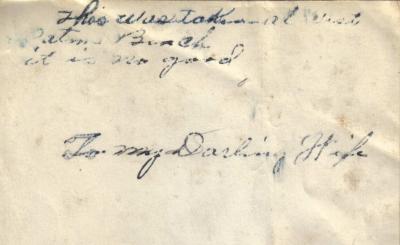 This was taken at West
Palm Beach
it is no good
To my Darling Wife